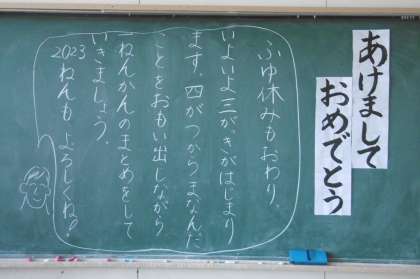 あけまして
おめでとう
ふゆ休みもおわり。
いよいよ三がっきがはじまり
ます。四がつからまなんだ
ことをおもい出しながら
一ねんかんのまとめをして
いきましょう。
2023ねんも よろしくね!